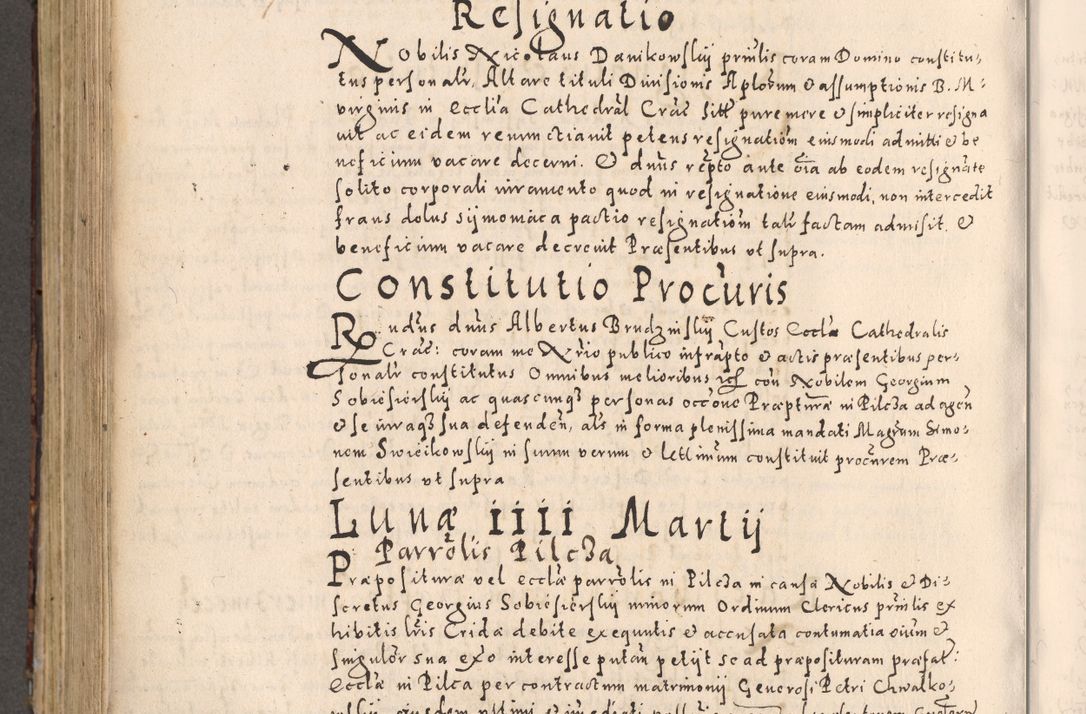 Resignatio
Nobilis Nicolaus Danikowskij prñlis coram Domino constitu:
tus personalr, Altare tituli Divisionis Aplorum et assumptionis B. M:
virginis in Ecclia Cathedral Crac sitt pure mere et simpliciter resigna
vit ac eidem renunctiavit petens resignatiom eiusmodi admitti et be
neficium vacare decerni. Et dnus rcpto ante oia ab eodem resignate
solito corporali iuramento quod in resignatione eiusmodi, non intercedit
fraus dolus sijmoniaca pactio resignatiom talr factam admisit. Et
beneficium vacare decrevit Præsentibus ut supra.
Constitutio Procuris
Rndus dnus Albertus Brudzinskij Custos Ecclæ Cathedralis
Crac: coram me Nrio publico infrapto et actis præsentibus per:
sonalr constitutus Omnibus melioribus con Nobilem Georgium
Sobiesierskij ac quascunq personas occone Præpturæ in Pilcza ad agen
et se iuraq sua defenden, als in forma plenissima mandati Magrum Simo:
nem Swieikowskij in suum verum et letlimum constituit procurem Præ:
sentibus ut supra
Lunæ iiii Martij
Parrolis Pilcza
Præpositura vel ecclæ parrolis in Pilcza in causa Nobilis et Di:
scretus Georgius Sobiesierskij minorum Ordinum Clericus prñlis ex
hibitis lris Cridæ debite exequutis et accusata contumatia oium et
singulor sua exo interesse putan petijt se ad præposituram præfat:
Ecclæ in Pilca per contractum matrimonij Generosi Petri Chwalko: